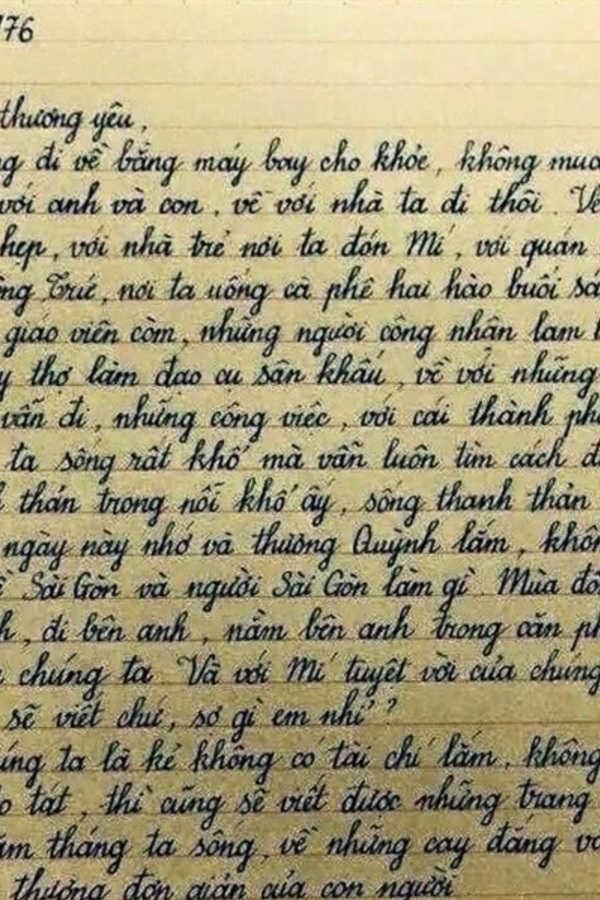 176
thương yêu,
ng đi về bằng máy bay cho khỏe, không mua
với anh và con, về với nhà ta đi thôi. Về
hẹp, với nhà trẻ nơi ta đón Mí, với quán
ng Trứ, nơi ta uống cà phê hai hào buổi sá
giáo viên còm, những người công nhân lam
y thợ làm đạo cụ sân khấu, về với những
vẫn đi, những công việc, với cái thành phố
ta sống rất khổ mà vẫn luôn tìm cách để
thản trong nỗi khổ ấy, sống thanh thản
ngày này nhớ và thương Quỳnh lắm, khôn
ề Sài Gòn và người Sài Gòn làm gì. Mùa đô
h, đi bên anh, nằm bên anh trong căn ph
a chúng ta. Và với Mí tuyệt vời của chúng
sẽ viết chứ, sợ gì em nhỉ?
úng ta là kẻ không có tài chí lắm, không
o tát, thì cũng sẽ viết được những trang
ăm tháng ta sống, về những cay đắng và
thường đơn giản của con người